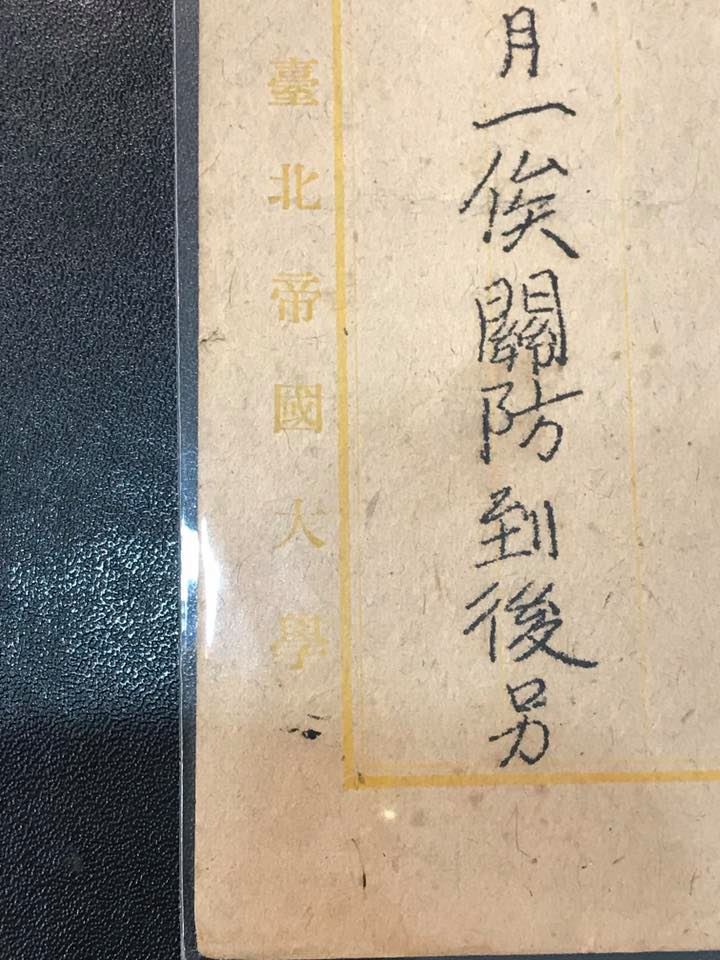 月一俟關防到後另
臺北帝國大學